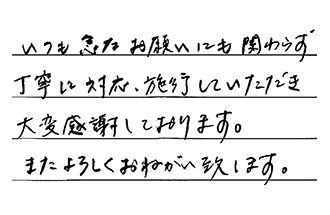 いつも急なお願いにも関わらず
丁寧に対応、施行していただき
大変感謝しております。
またよろしくおねがい致します。